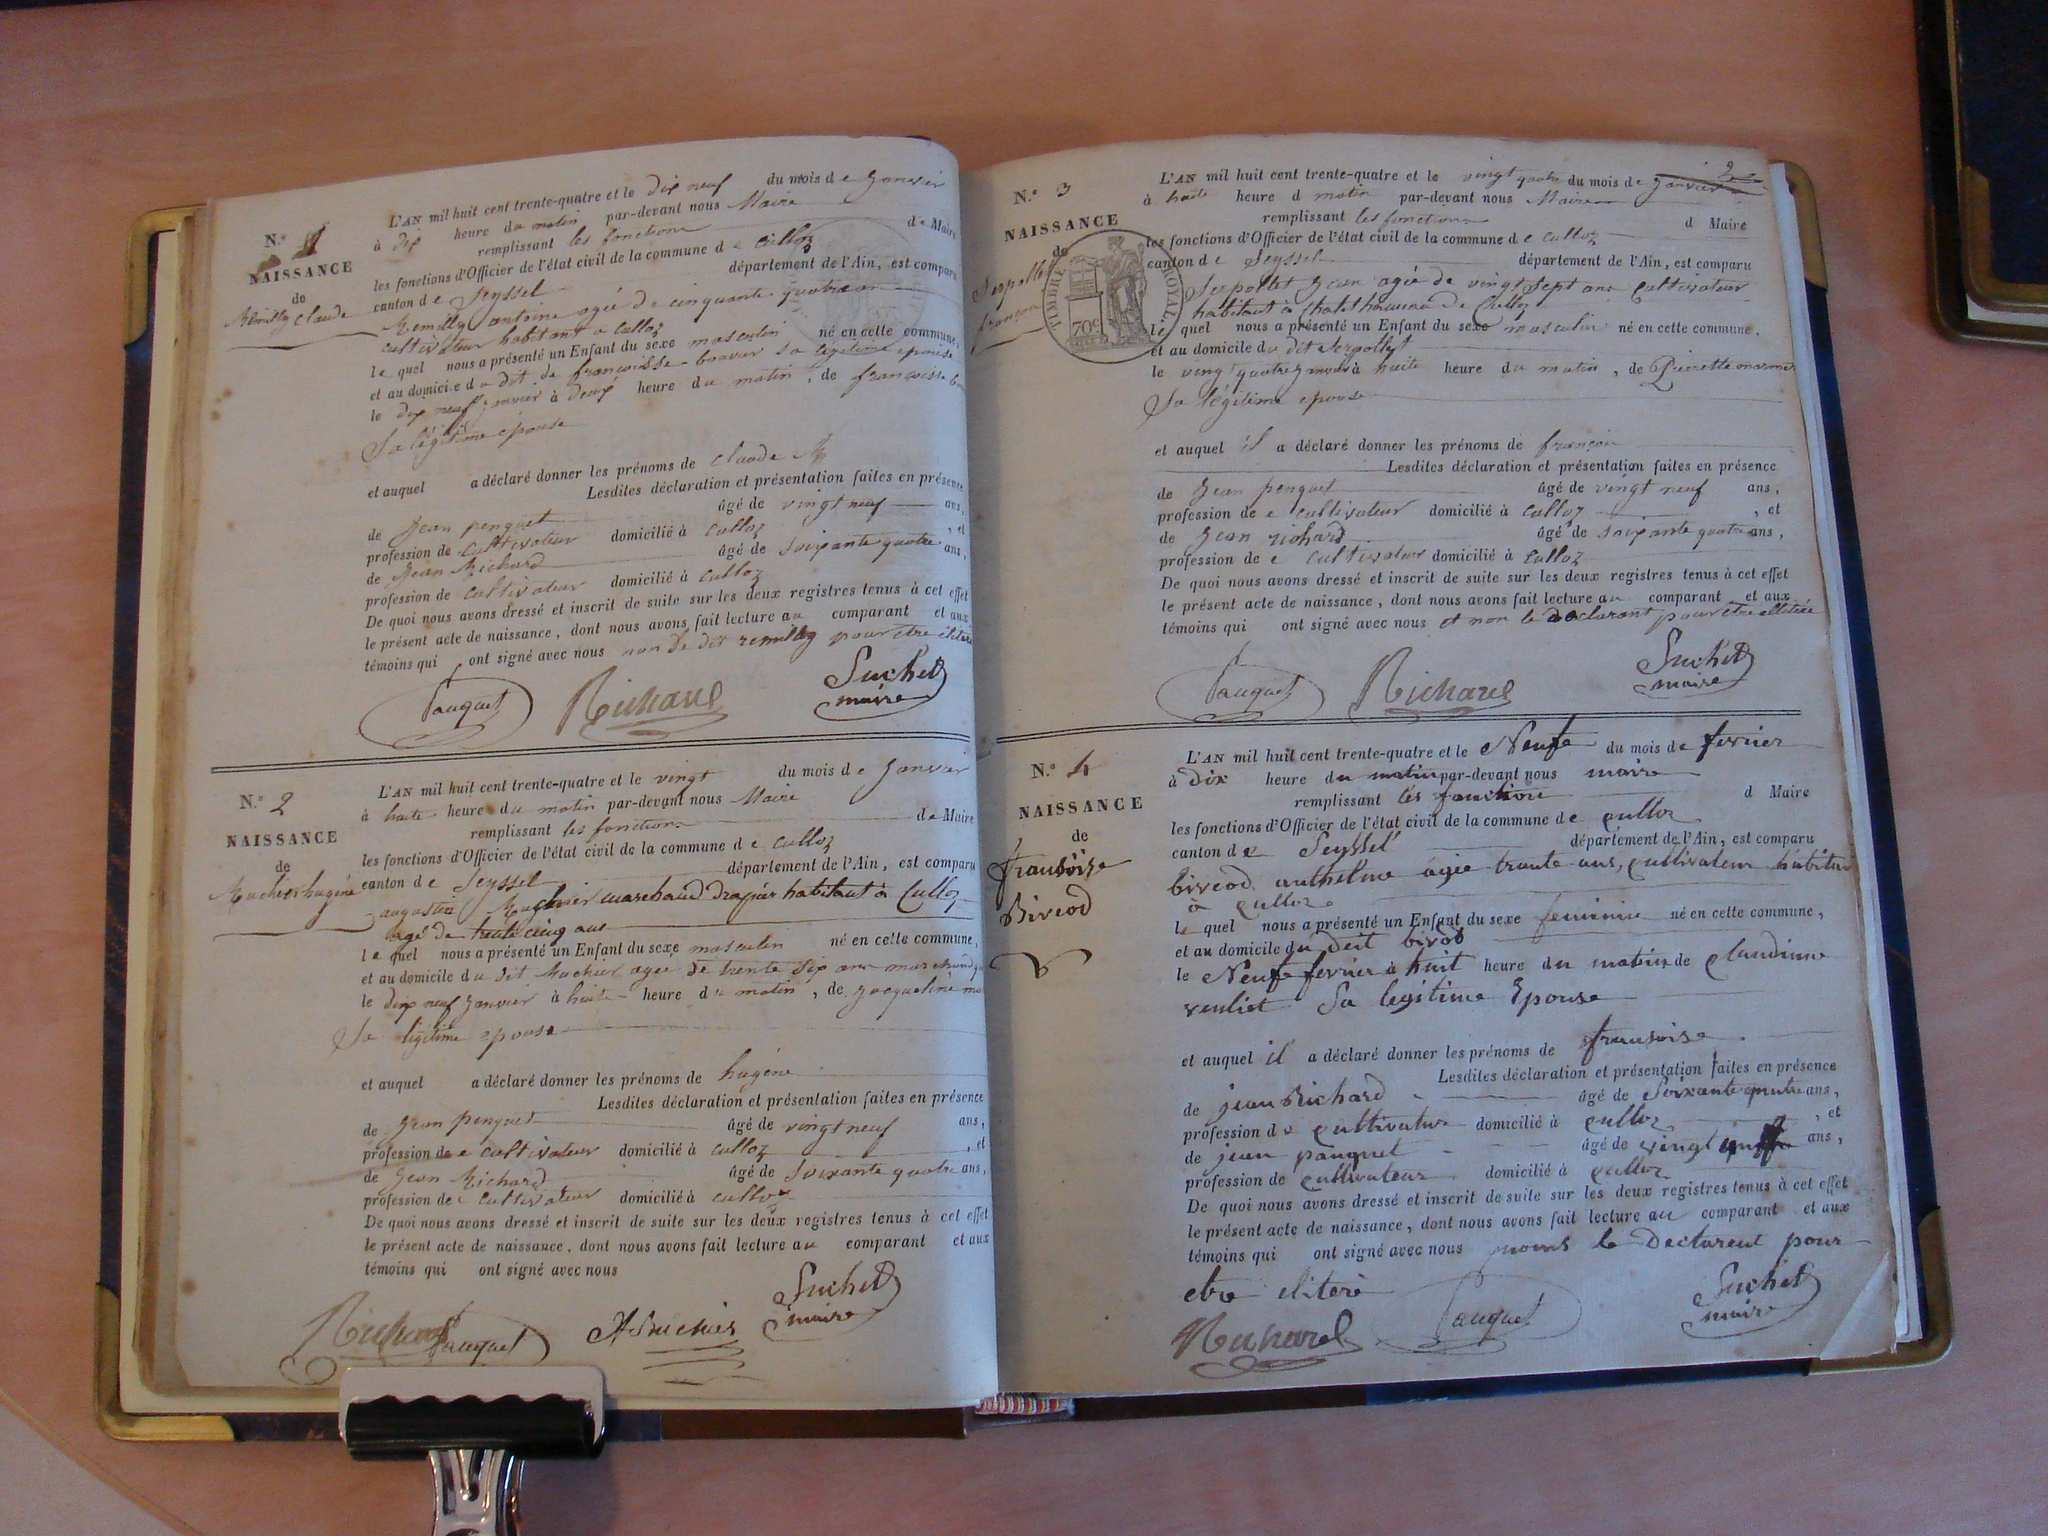 N.° 1
NAISSANCE
de
Remilly Claude
L'AN mil huit cent trente-quatre et le dix neuf du mois de Janvier
à dix heure du matin par-devant nous Maire
remplissant les fonctions de Maire
les fonctions d'Officier de l'état civil de la commune de Culloz
canton de Seyssel département de l'Ain, est comparu
Remilly antoine agée de cinquante quatre an
cultivateur habitant a Culloz
le quel nous a présenté un Enfant du sexe masculin né en cette commune,
et au domicile du dit de françoisse sa légitime epouse
le dix neuf janvier à deux heure du matin, de françoisse
Sa légitime epouse
et auquel a déclaré donner les prénoms de claude
Lesdites déclaration et présentation faites en présence
de Jean penquet âgé de vingt neuf ans,
profession de cultivateur domicilié à Culloz , et
de Jean Richard âgé de soixante quatre ans,
profession de cultivateur domicilié à Culloz
De quoi nous avons dressé et inscrit de suite sur les deux registres tenus à cet effet
le présent acte de naissance, dont nous avons fait lecture au comparant et aux
témoins qui ont signé avec nous non le dit remilly pour etre eliteré
Pauquet Richard Suchet
maire
N.° 2
NAISSANCE
de
hugéne
L'AN mil huit cent trente-quatre et le vingt du mois de Janvier
à huite heure du matin par-devant nous Maire
remplissant les fonctions de Maire
les fonctions d'Officier de l'état civil de la commune de Culloz
canton de Seyssel département de l'Ain, est comparu
augustin marchand drapier habitant à Culloz
agé de trente cinq ans
le quel nous a présenté un Enfant du sexe masculin né en cette commune,
et au domicile du dit agée de trente six ans marchand
le dix neuf Janvier à huite heure du matin, de jacqueline
Sa légitime epouse
et auquel a déclaré donner les prénoms de hugéne
Lesdites déclaration et présentation faites en présence
de Jean penquet âgé de vingt neuf ans,
profession de cultivateur domicilié à Culloz , et
de Jean Richard âgé de soixante quatre ans,
profession de cultivateur domicilié à Culloz
De quoi nous avons dressé et inscrit de suite sur les deux registres tenus à cet effet
le présent acte de naissance, dont nous avons fait lecture au comparant et aux
témoins qui ont signé avec nous
Richard Pauquet Suchet
maire
2
N.° 3
NAISSANCE
de
Serpollet
françois
TIMBRE ROYAL
70c
L'AN mil huit cent trente-quatre et le vingt quatre du mois de Janvier
à huite heure d matin par-devant nous Maire
remplissant les fonctions d Maire
les fonctions d'Officier de l'état civil de la commune de Culloz
canton de Seyssel département de l'Ain, est comparu
Serpollet Jean agée de vingt Sept ans Cultivateur
habitant à de Culloz
le quel nous a présenté un Enfant du sexe masculin né en cette commune,
et au domicile du dit Serpollet
le vingt quatre janvier à huite heure du matin, de Pierrette
Sa légitime epouse
et auquel il a déclaré donner les prénoms de françois
Lesdites déclaration et présentation faites en présence
de Jean penquet âgé de vingt neuf ans,
profession de cultivateur domicilié à Culloz , et
de Jean richard âgé de soixante quatre ans,
profession de cultivateur domicilié à Culloz
De quoi nous avons dressé et inscrit de suite sur les deux registres tenus à cet effet
le présent acte de naissance, dont nous avons fait lecture au comparant et aux
témoins qui ont signé avec nous et non le declarant pour etre elliterée
Pauquet Richard Suchet
maire
N.° 4
NAISSANCE
de
fransoise
Biveod
L'AN mil huit cent trente-quatre et le Neufe du mois de fevrier
à dix heure du matin par-devant nous maire
remplissant les fonctions d Maire
les fonctions d'Officier de l'état civil de la commune de Culloz
canton de Seyssel département de l'Ain, est comparu
biveod anthelme agée trante ans, cultivateur habitan
à Culloz
le quel nous a présenté un Enfant du sexe feminine né en cette commune,
et au domicile du deit bivod
le Neufe fevrier à huit heure du matin de claudine
Sa legitime Epouse
et auquel il a déclaré donner les prénoms de fransoise
Lesdites déclaration et présentation faites en présence
de jean Richard âgé de Soixante quatre ans,
profession de cultivateur domicilié à Culloz , et
de jean pauquet âgé de vingt ans,
profession de cultivateur domicilié à Culloz
De quoi nous avons dressé et inscrit de suite sur les deux registres tenus à cet effet
le présent acte de naissance, dont nous avons fait lecture au comparant et aux
témoins qui ont signé avec nous le declarent pour
etre elitere
Richard Pauquet Suchet
maire